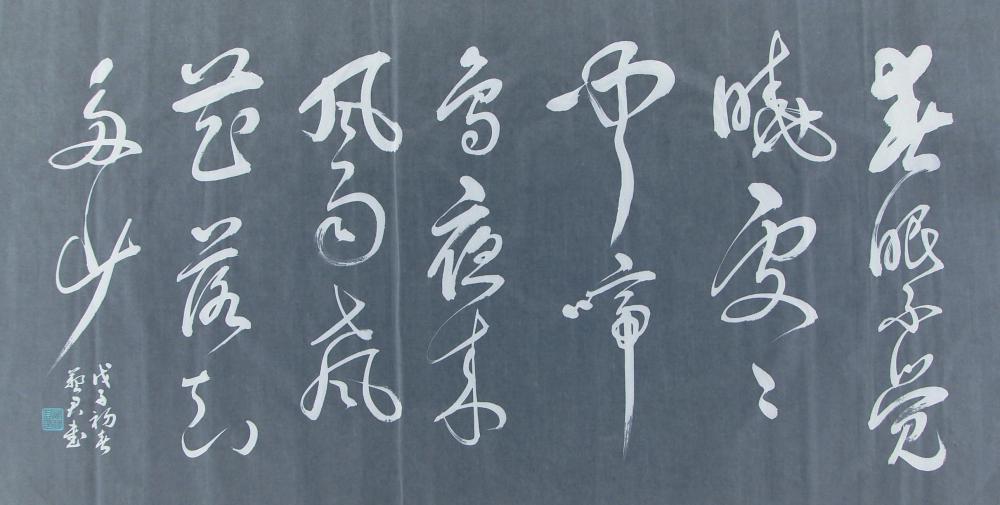 春眠不觉
晓处々
闻啼
鸟夜来
风雨声
花落知
多少
戊子初春
君书